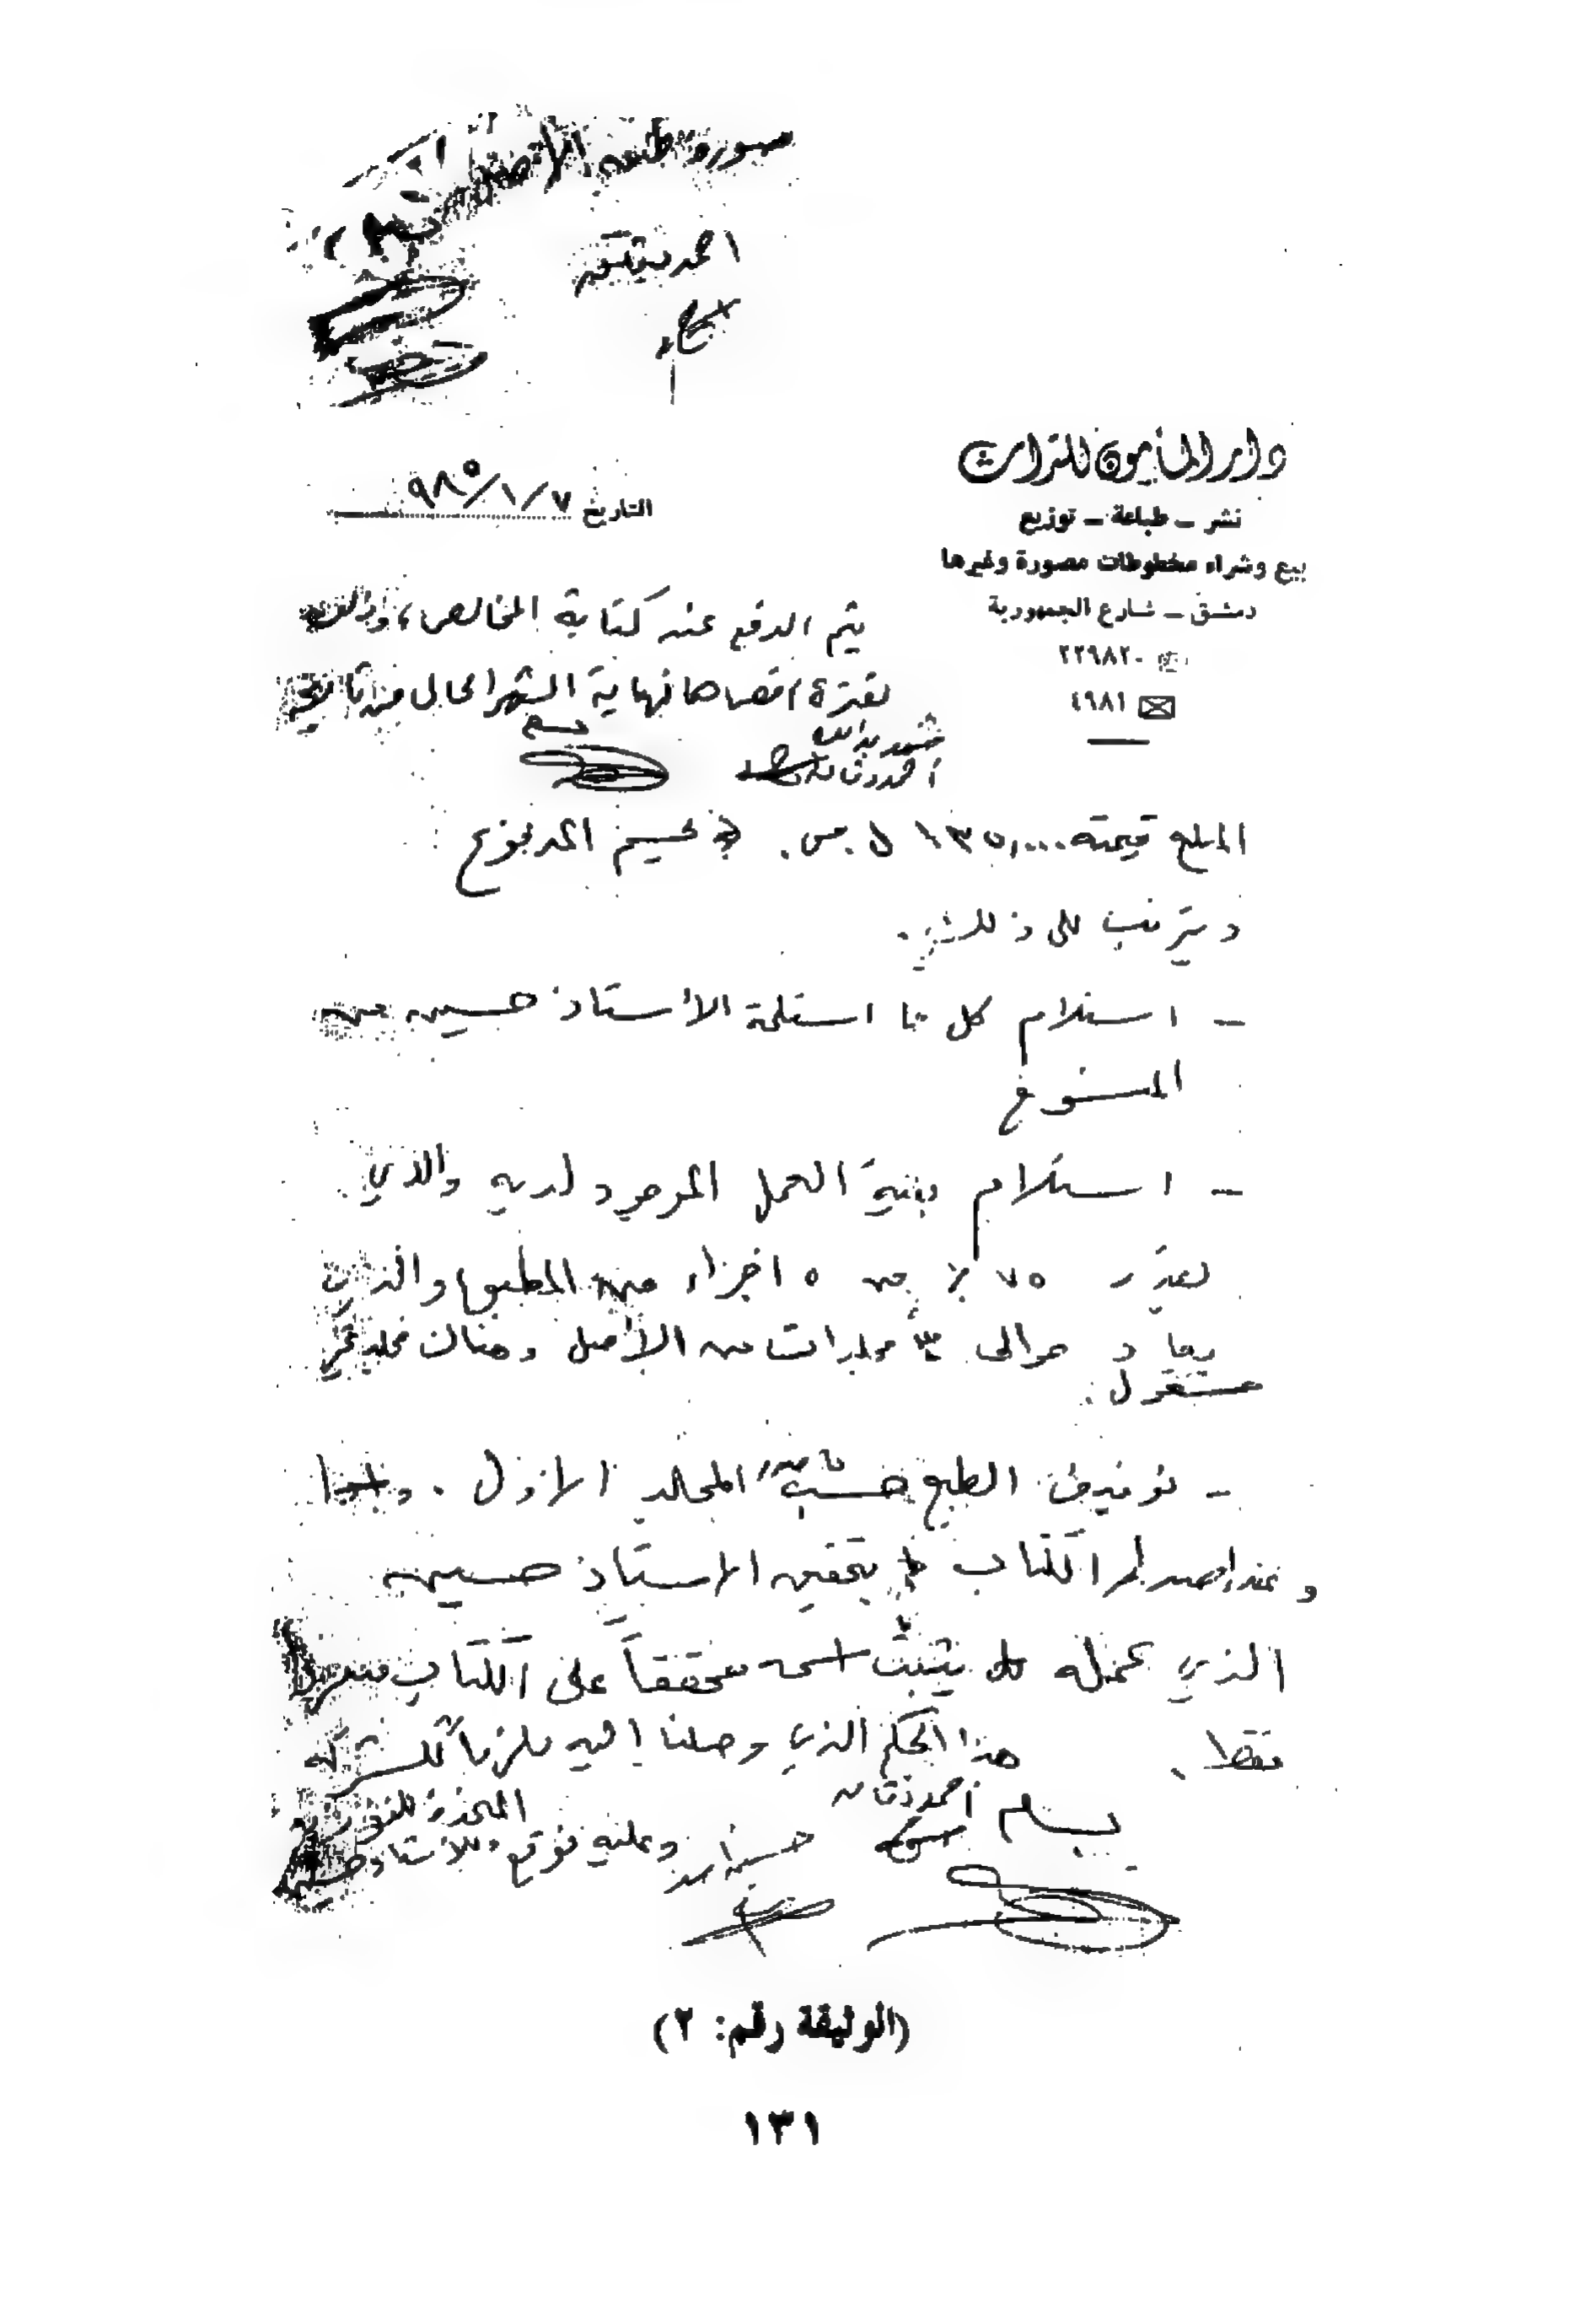 صورة طبق الأصل
احمد
دار المأمون للتراث
نشر ـ طباعة ـ توزيع
بيع وشراء مخطوطات مصورة وغيرها
دمشق ـ شارع الجمهورية
٢٢٩٨٢٠
٤٩٨١
التاريخ ٧/١/٩٨٥
يتم الدفع عند كتابة المخالص، وذلك
لفترة اقصاها نهاية الشهر الحالي من تاريخه
المبلغ قيمته ١٣٥,٠٠٠ ل.س.
ويترتب على ذلك
ـ استلام كل ما استلمه الأستاذ حسين من
المنسوخ
ـ استلام بقية العمل الموجود لديه والذي
يقدر ٧٥٪ من ٥ اجزاء من المطبوع والذي
يعادل حوالي ٣ مجلدات من الأصل وهناك مجلد غير
مشغول.
ـ توقيف الطبع المجلد الاول.
وعند اصدار الكتاب بتحقيق الاستاذ حسين
الذي عمله يثبت اسمه محققاً على الكتاب
فقط. هذا الحكم الذي وصلنا إليه ملزماً
وعليه نوقع
(الوثيقة رقم: ٢)
١٣١